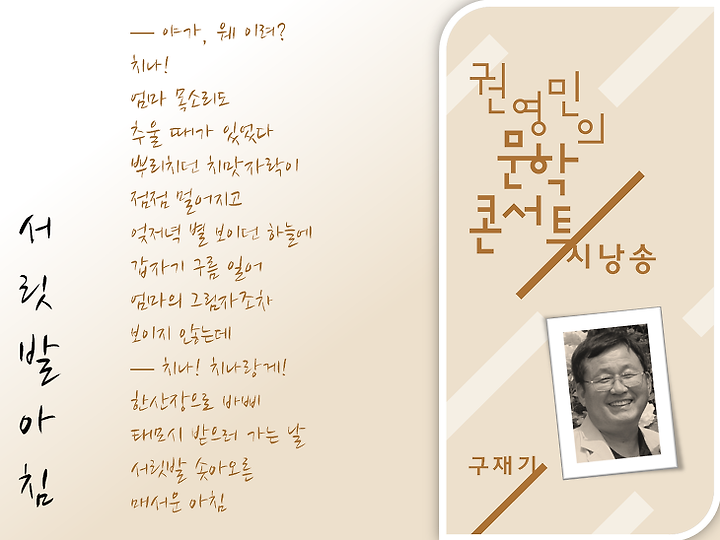 서릿발 아침
— 야가, 웨 이려?
치나!
엄마 목소리도
추울 때가 있었다
뿌리치던 치맛자락이
점점 멀어지고
엊저녁 별 보이던 하늘에
갑자기 구름 일어
엄마의 그림자조차
보이지 않는데
— 치나! 치나랑게!
한산장으로 바삐
태모시 받으러 가는 날
서릿발 솟아오른
매서운 아침
권영민의
문학
콘서트
시낭송
구재기